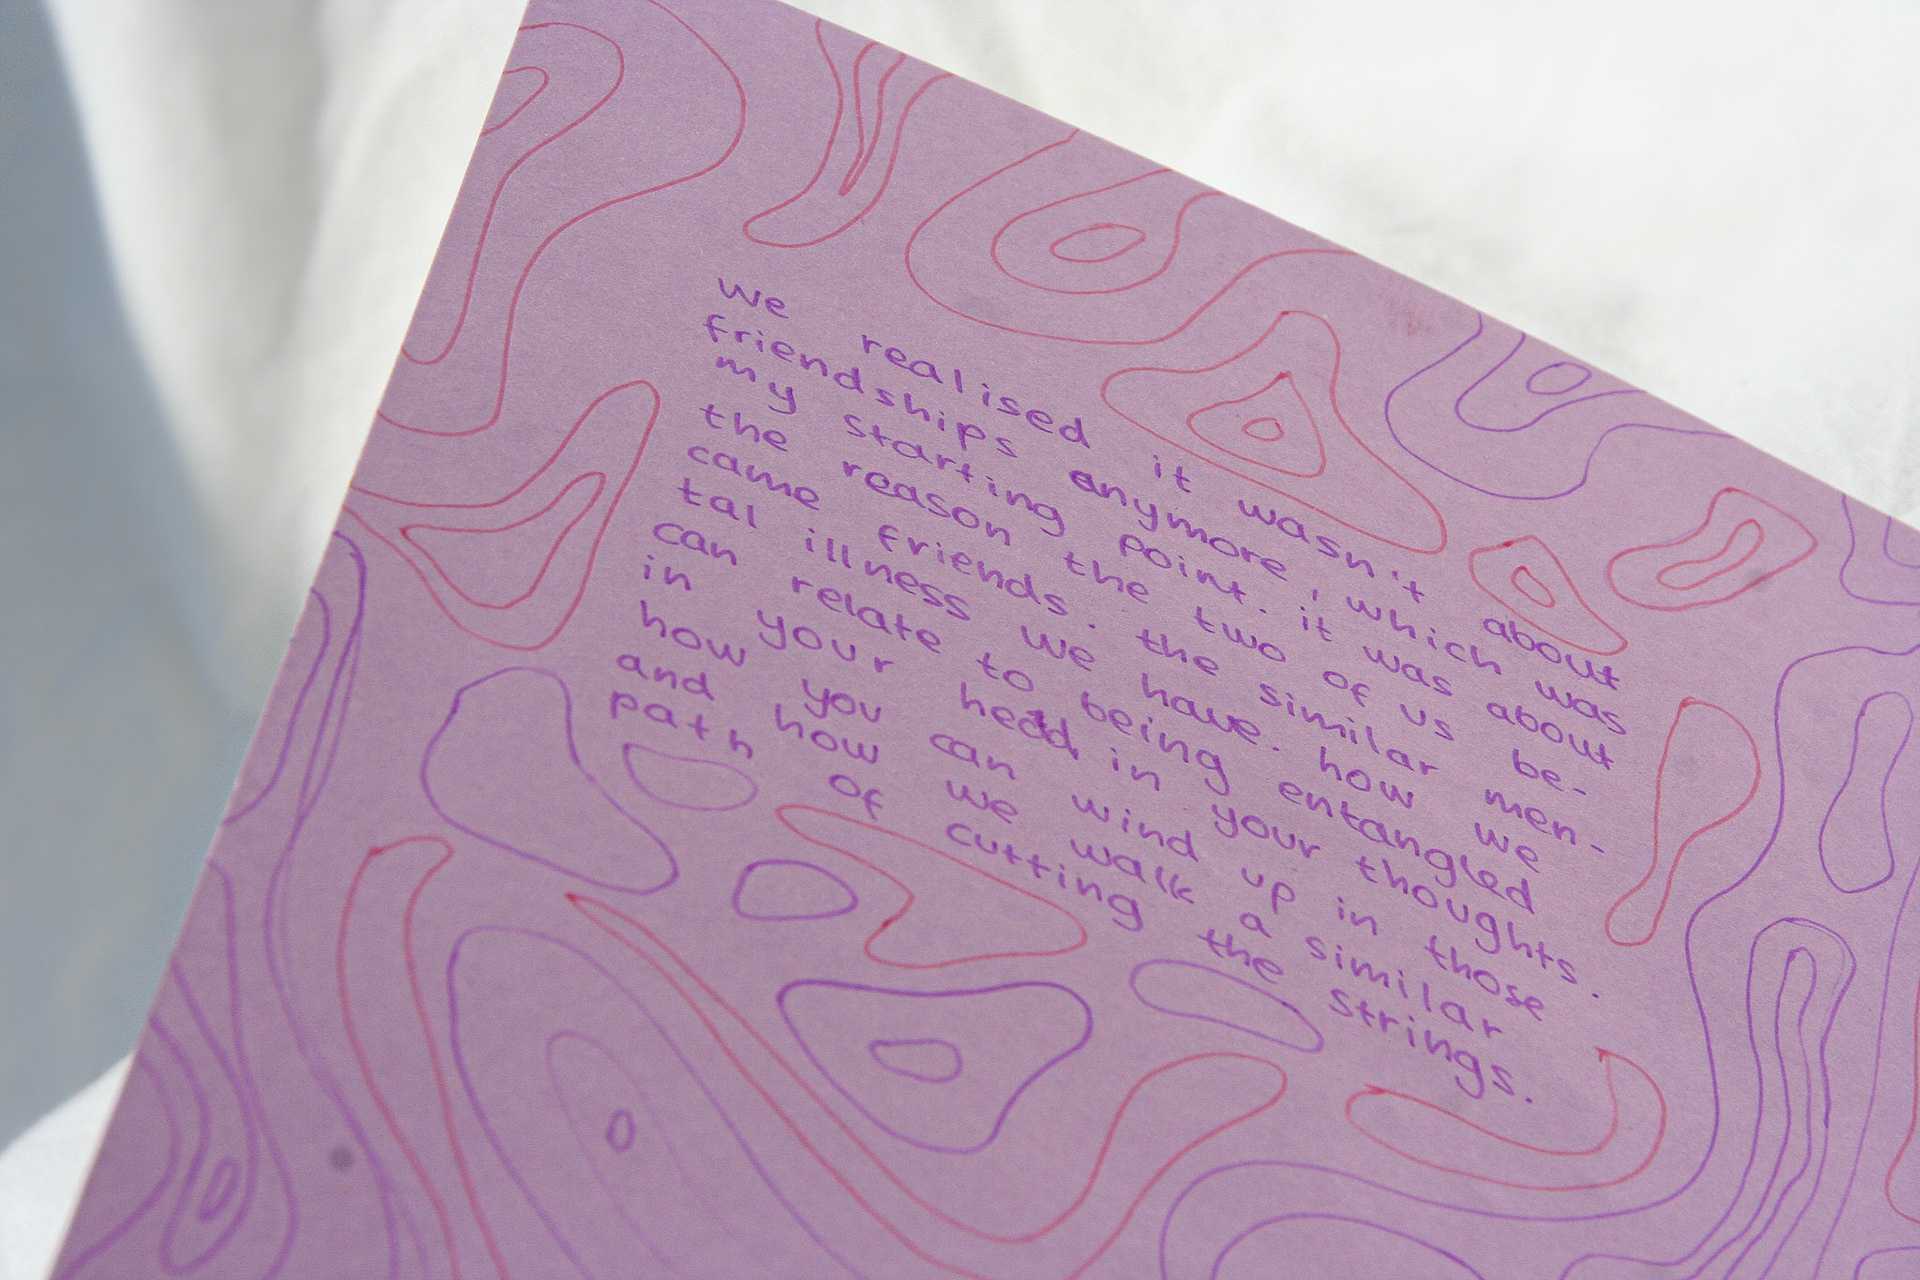 we realised it wasn't about
friendships anymore, which was
my starting point. it was about
the reason the two of us be-
came friends. the similar men-
tal illness we have. how we
can relate to being entangled
in your head, in your thoughts.
how you can wind up in those
and how we walk a similar
path of cutting the strings.